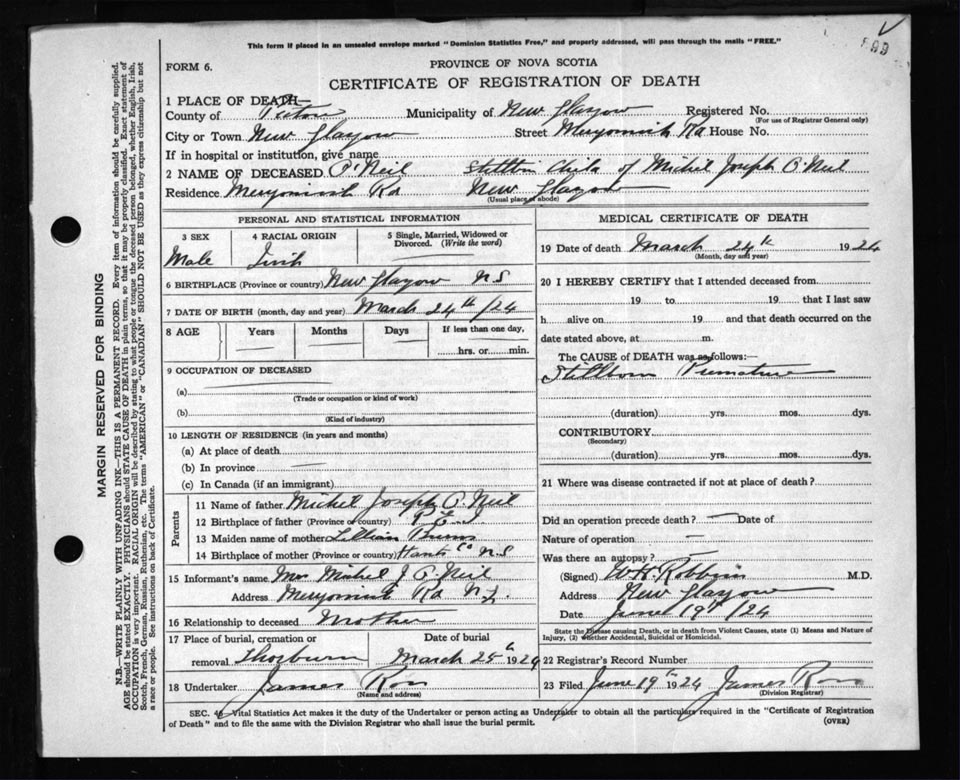 This form if placed in an unsealed envelope marked "Dominion Statistics Free," and properly addressed, will pass through the mails "FREE."
FORM 6.
PROVINCE OF NOVA SCOTIA
CERTIFICATE OF REGISTRATION OF DEATH
1 PLACE OF DEATH—
County of Pictou Municipality of New Glasgow Registered No.
(For use of Registrar General only)
City or Town New Glasgow Street Merigomish Rd House No.
If in hospital or institution, give name
2 NAME OF DECEASED O'Neil Stillborn Child of Michel Joseph O'Neil
Residence Merigomish Rd New Glasgow
(Usual place of abode)
PERSONAL AND STATISTICAL INFORMATION
3 SEX
Male
4 RACIAL ORIGIN
Irish
5 Single, Married, Widowed or Divorced. (Write the word)
6 BIRTHPLACE (Province or country) New Glasgow N.S
7 DATE OF BIRTH (month, day and year) March 24th /24
8 AGE Years Months Days If less than one day,
hrs. or min.
9 OCCUPATION OF DECEASED
(a)
(Trade or occupation or kind of work)
(b)
(Kind of industry)
10 LENGTH OF RESIDENCE (in years and months)
(a) At place of death
(b) In province
(c) In Canada (if an immigrant)
Parents
11 Name of father Michel Joseph O'Neil
12 Birthplace of father (Province or country)
13 Maiden name of mother Lillian Burns
14 Birthplace of mother (Province or country) Hants Co N.S
15 Informant's name Mrs Michel J O'Neil
Address Merigomish Rd N.G.
16 Relationship to deceased Mother
17 Place of burial, cremation or removal Thorburn
Date of burial
March 25th 1924
18 Undertaker James Ross
(Name and address)
MEDICAL CERTIFICATE OF DEATH
19 Date of death March 24th 1924
(Month, day and year)
20 I HEREBY CERTIFY that I attended deceased from
19 to 19 that I last saw
h alive on 19 and that death occurred on the
date stated above, at m.
The CAUSE of DEATH was as follows:—
Stillborn Premature
(duration) yrs. mos. dys.
CONTRIBUTORY
(Secondary)
(duration) yrs. mos. dys.
21 Where was disease contracted if not at place of death?
Did an operation precede death? Date of
Nature of operation
Was there an autopsy?
(Signed) W.H. Robbins M.D.
Address New Glasgow
Date June 19th /24
State the Disease causing Death, or in death from Violent Causes, state (1) Means and Nature of
Injury, (2) whether Accidental, Suicidal or Homicidal.
22 Registrar's Record Number
23 Filed June 19th 1924 James Ross
(Division Registrar)
SEC. 4 Vital Statistics Act makes it the duty of the Undertaker or person acting as Undertaker to obtain all the particulars required in the "Certificate of Registration
of Death" and to file the same with the Division Registrar who shall issue the burial permit.
(OVER)
MARGIN RESERVED FOR BINDING
N.B.—WRITE PLAINLY WITH UNFADING INK—THIS IS A PERMANENT RECORD. Every item of information should be carefully supplied.
AGE should be stated EXACTLY. PHYSICIANS should STATE CAUSE OF DEATH in plain terms, so that it may be properly classified. Exact statement of
OCCUPATION is very important. RACIAL ORIGIN will be described by stating to what people or tongue the deceased person belonged, whether English, Irish,
Scotch, French, German, Russian, Ruthenian, etc. The terms "AMERICAN" or "CANADIAN" SHOULD NOT BE USED as they express citizenship but not
a race or people. See instructions on back of Certificate.